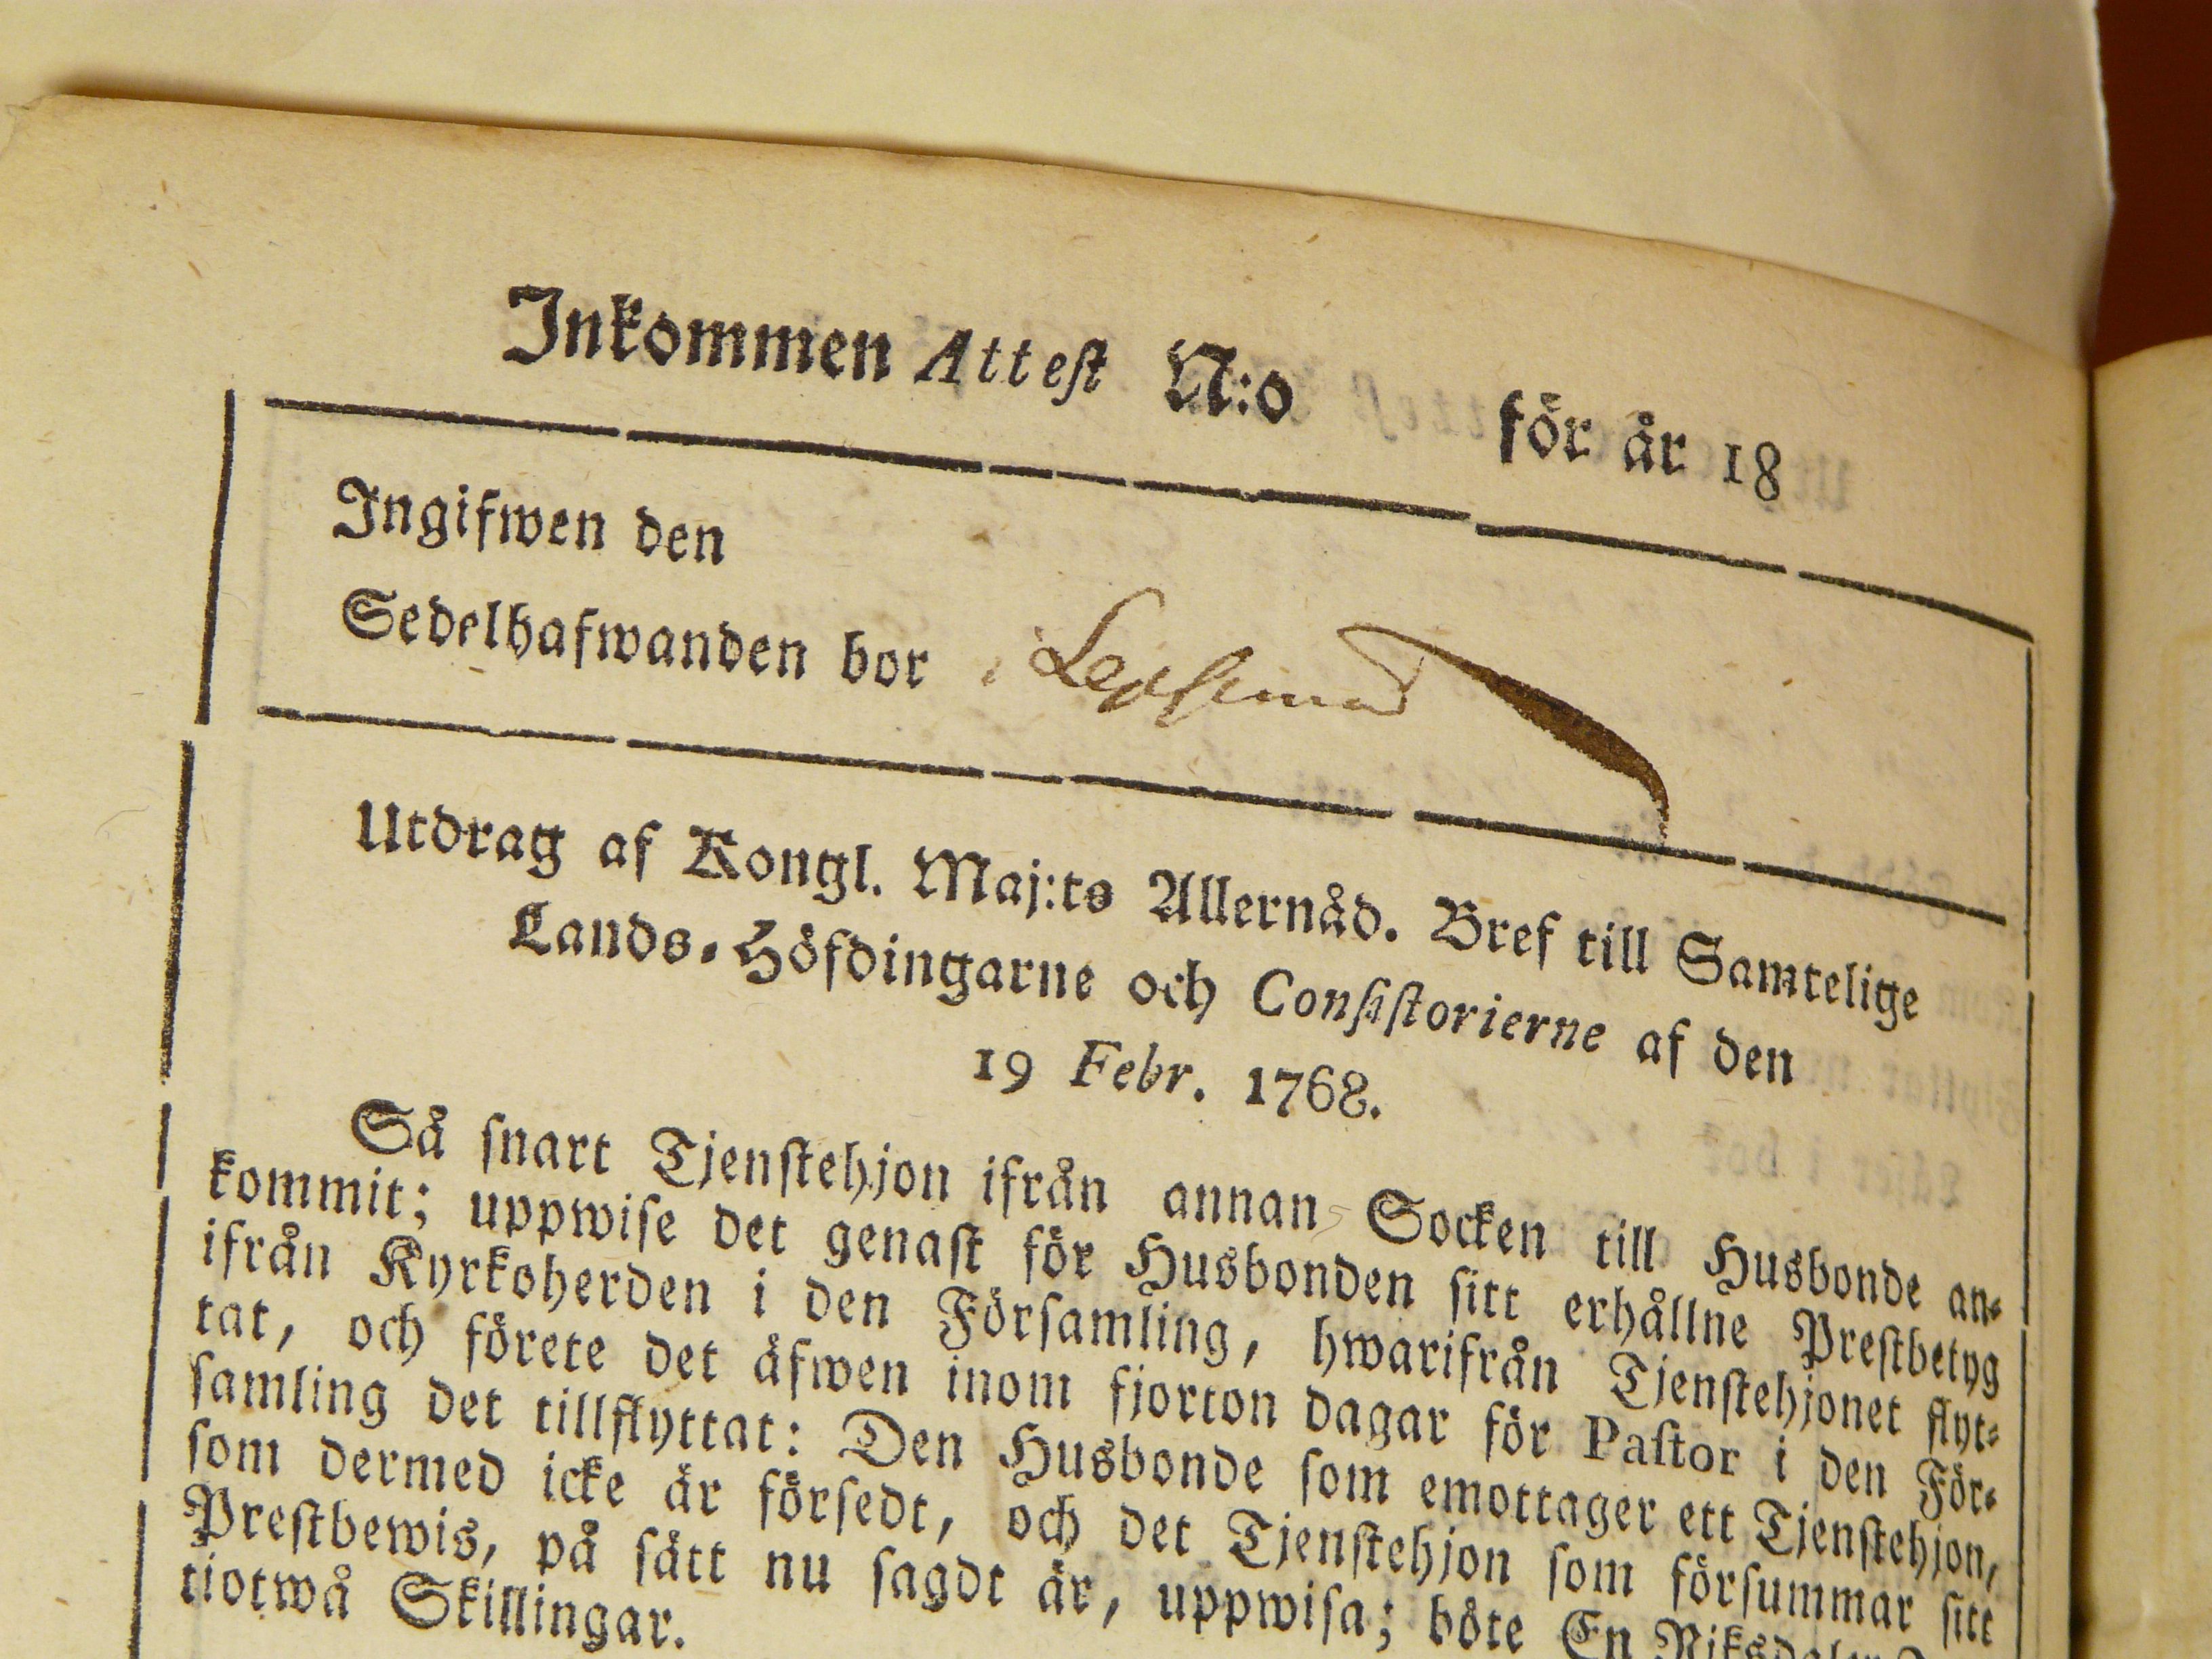 Inkommen Attest N:o för år 18
Ingifwen den
Sedelhafwanden bor i
Utdrag af Kongl. Maj:ts Allernåd. Bref till Samtelige
Lands-Höfdingarne och Consistorierne af den
19 Febr. 1768.
Så snart Tjenstehjon ifrån annan Socken till Husbonde an-
kommit; uppwise det genast för Husbonden sitt erhållne Prestbetyg
ifrån Kyrkoherden i den Församling, hwarifrån Tjenstehjonet flyt-
tat, och förete det äfwen inom fjorton dagar för Pastor i den För-
samling det tillflyttat: Den Husbonde som emottager ett Tjenstehjon,
som dermed icke är försedt, och det Tjenstehjon som försummar sitt
Prestbewis, på sätt nu sagdt är, uppwisa; böte En Riksdaler
tiotwå Skillingar.